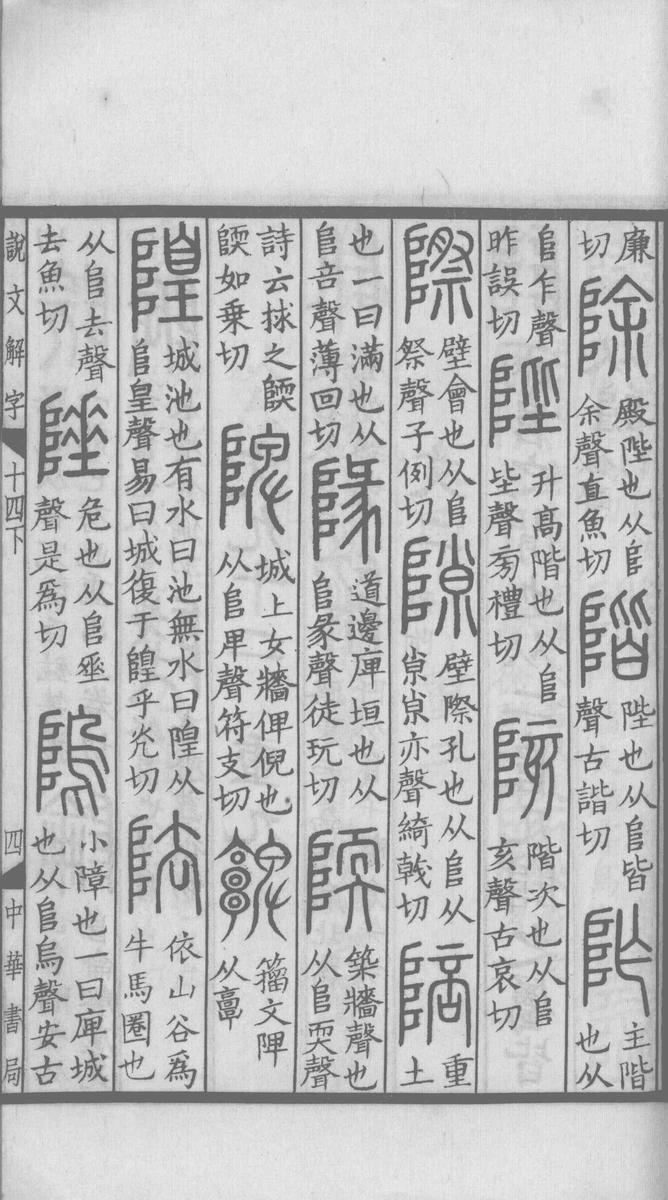 廉切除殿陛也从𨸏余聲直魚切階陛也从𨸏皆聲古諧切阼主階也从
𨸏乍聲昨誤切陛升高階也从𨸏坒聲㫄禮切陔階次也从𨸏亥聲古哀切
際壁會也从𨸏祭聲子例切隙壁際孔也从𨸏从𡭴𡭴亦聲綺戟切陪重土
也一曰滿也从𨸏咅聲薄回切隊道邊庳垣也从𨸏彖聲徒玩切陾築牆聲也从𨸏耎聲
詩云捄之陾陾如乗切陴城上女牆俾倪也从𨸏卑聲符支切𩫫籒文陴从𩫏
隍城池也有水曰池無水曰隍从𨸏皇聲易曰城復于隍乎光切阹依山谷爲牛馬圈也
从𨸏去聲去魚切陲危也从𨸏𡍮聲是爲切隖小障也一曰庳城也从𨸏烏聲安古
說文解字 十四下 四 中華書局